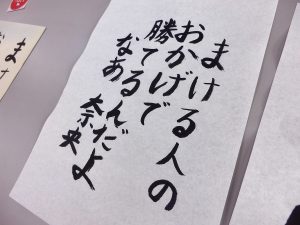 まける人の
おかげで
勝てるんだよ
なあ
奈央
まけ